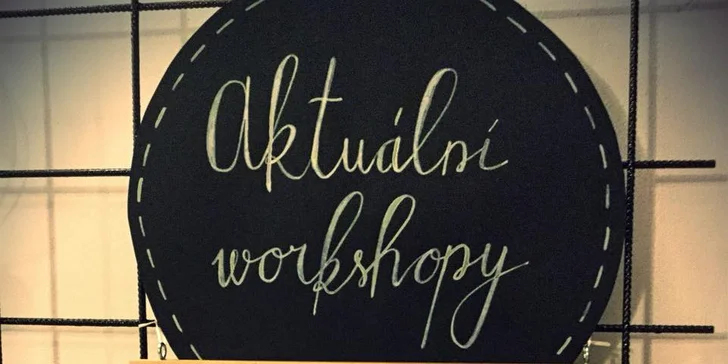 Aktuální
workshopy